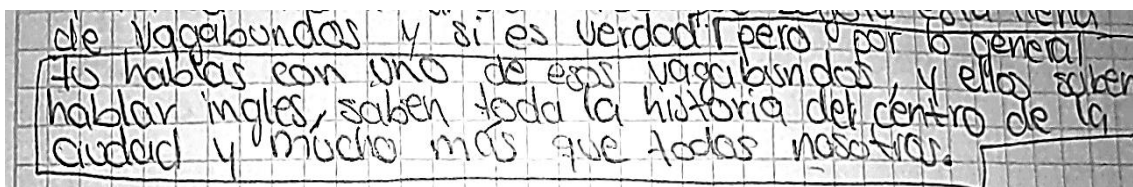 de vagabundos y si es verdad pero por lo general
tu hablas con uno de esos vagabundos, y ellos saben
hablar ingles, saben toda la historia del centro de la
ciudad y mucho más que todos nosotros.